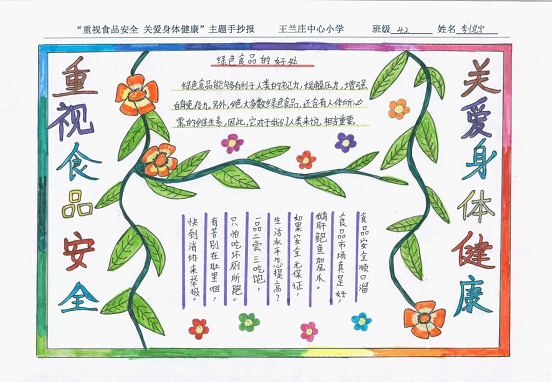 “重视食品安全 关爱身体健康”主题手抄报 王兰庄中心小学 班级 42 姓名
重视食品安全
关爱身体健康
绿色食品的好处
绿色食品能够有利于人类的视力,缓解压力,增强
自身免疫力。另外,绝大多数绿色食品,还含有人体所必
需的维生素,因此,它对于我们人类来说,相当重要。
食品安全顺口溜
食品市场真是好,
鹅肝鲍鱼加瓜米。
如果安全无保证,
生活水平怎提高?
一品二尝三吃饱,
只怕吃坏厕所跑。
有苦别在肚里咽,
快到消协来举报。